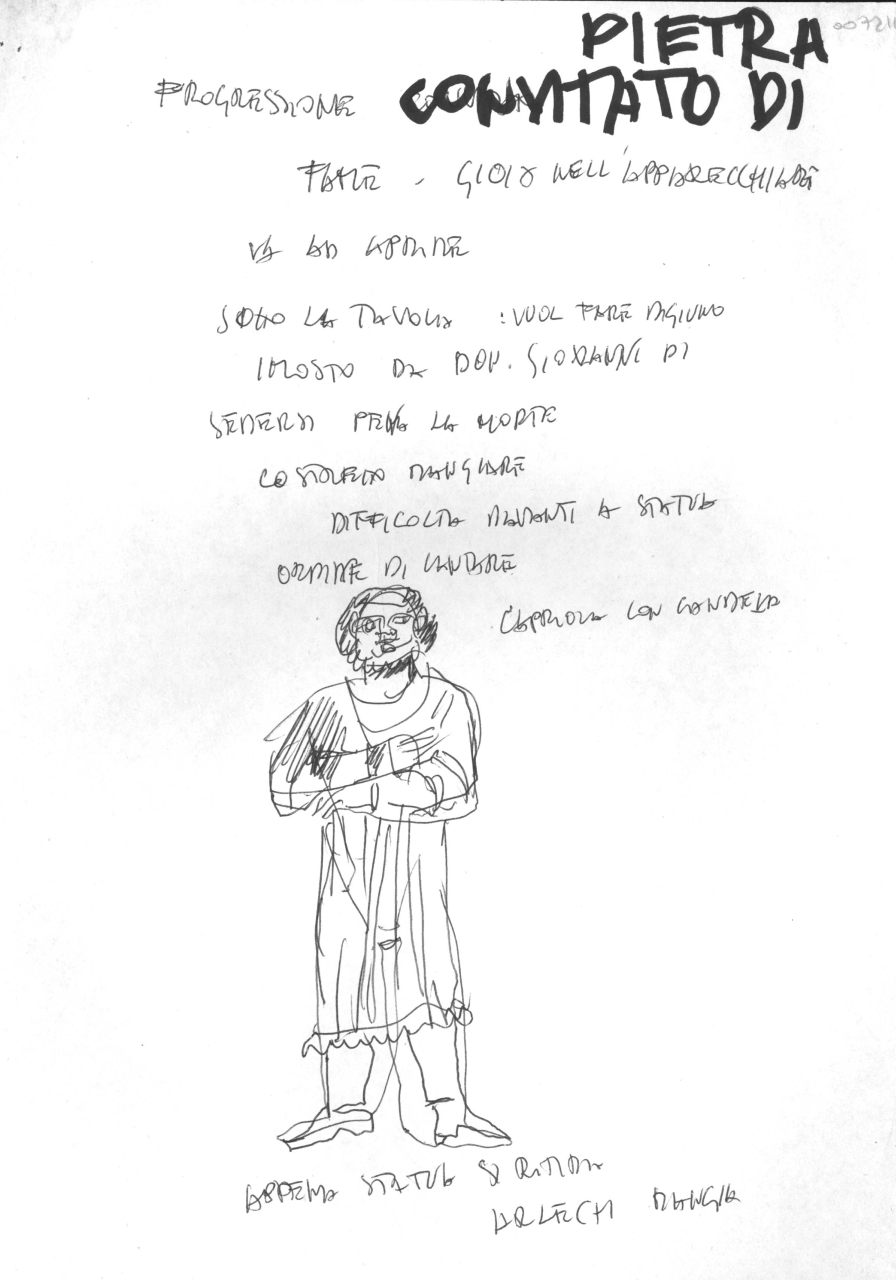 PIETRA
CONVITATO DI
PROGRESSIONE
FAME - GIOIA NELL'APPARECCHIARE
VA AD APRIRE
SOTTO LA TAVOLA : VUOL FARE DIGIUNO
IMPOSTO DA DON. GIOVANNI DI
SEDERSI PENA LA MORTE
COSTRETTO MANGIARE
DIFFICOLTA DAVANTI A STATUA
ORDINE DI CANTARE
CAPRIOLA CON CANDELA
APPENA STATUA SI RITIRA
ARLECHI MANGIA